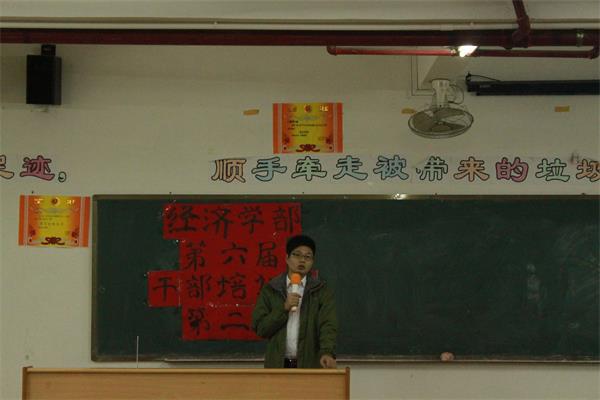 迹,
顺手牵走被带来的垃圾
经济学部
第六届
干部培
第二